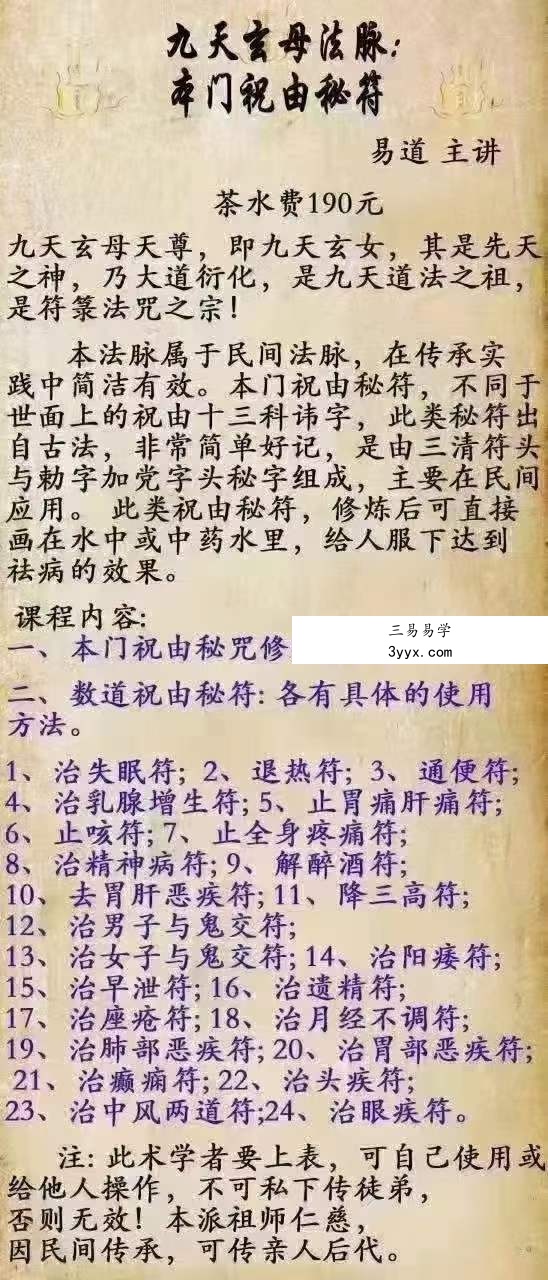 九天玄母法脉:
本门祝由秘符
易道 主讲
茶水费190元
九天玄母天尊，即九天玄女，其是先天
之神，乃大道衍化，是九天道法之祖，
是符箓法咒之宗!
本法脉属于民间法脉，在传承实
践中简洁有效。本门祝由秘符，不同于
世面上的祝由十三科讳字，此类秘符出
自古法，非常简单好记，是由三清符头
与勅字加党字头秘字组成，主要在民间
应用。 此类祝由秘符，修炼后可直接
画在水中或中药水里，给人服下达到
祛病的效果。
课程内容:
一、本门祝由秘咒修
三易易学
3yyx.com
二、数道祝由秘符: 各有具体的使用
方法。
1、治失眠符; 2、退热符; 3、通便符;
4、治乳腺增生符; 5、止胃痛肝痛符;
6、止咳符; 7、止全身疼痛符;
8、治精神病符; 9、解醉酒符;
10、去胃肝恶疾符; 11、降三高符;
12、治男子与鬼交符;
13、治女子与鬼交符; 14、治阳痿符;
15、治早泄符; 16、治遗精符;
17、治座疮符; 18、治月经不调符;
19、治肺部恶疾符; 20、治胃部恶疾符;
21、治癫痫符; 22、治头疾符;
23、治中风两道符;24、治眼疾符。
注: 此术学者要上表，可自己使用或
给他人操作，不可私下传徒弟，
否则无效! 本派祖师仁慈，
因民间传承，可传亲人后代。